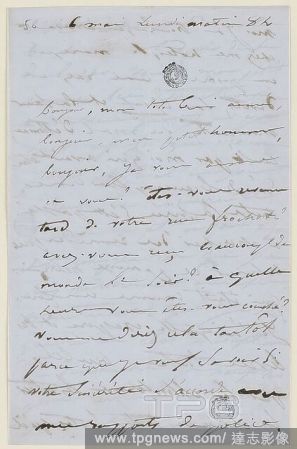 6 mai Lundi matin 8h
bonjour, mon tout bien aimé,
bonjour, mon petit homme,
bonjour, je vous
et vous? êtes-vous revenu
tard de votre rue Frochot?
avez-vous eu beaucoup de
monde le soir? à quelle
heure vous êtes-vous couché?
vous me direz cela tantôt
parce que je veux savoir si
votre sincérité s'accorde avec
mes rapports de police
TPG
www.tpgnews.com / 達志影像